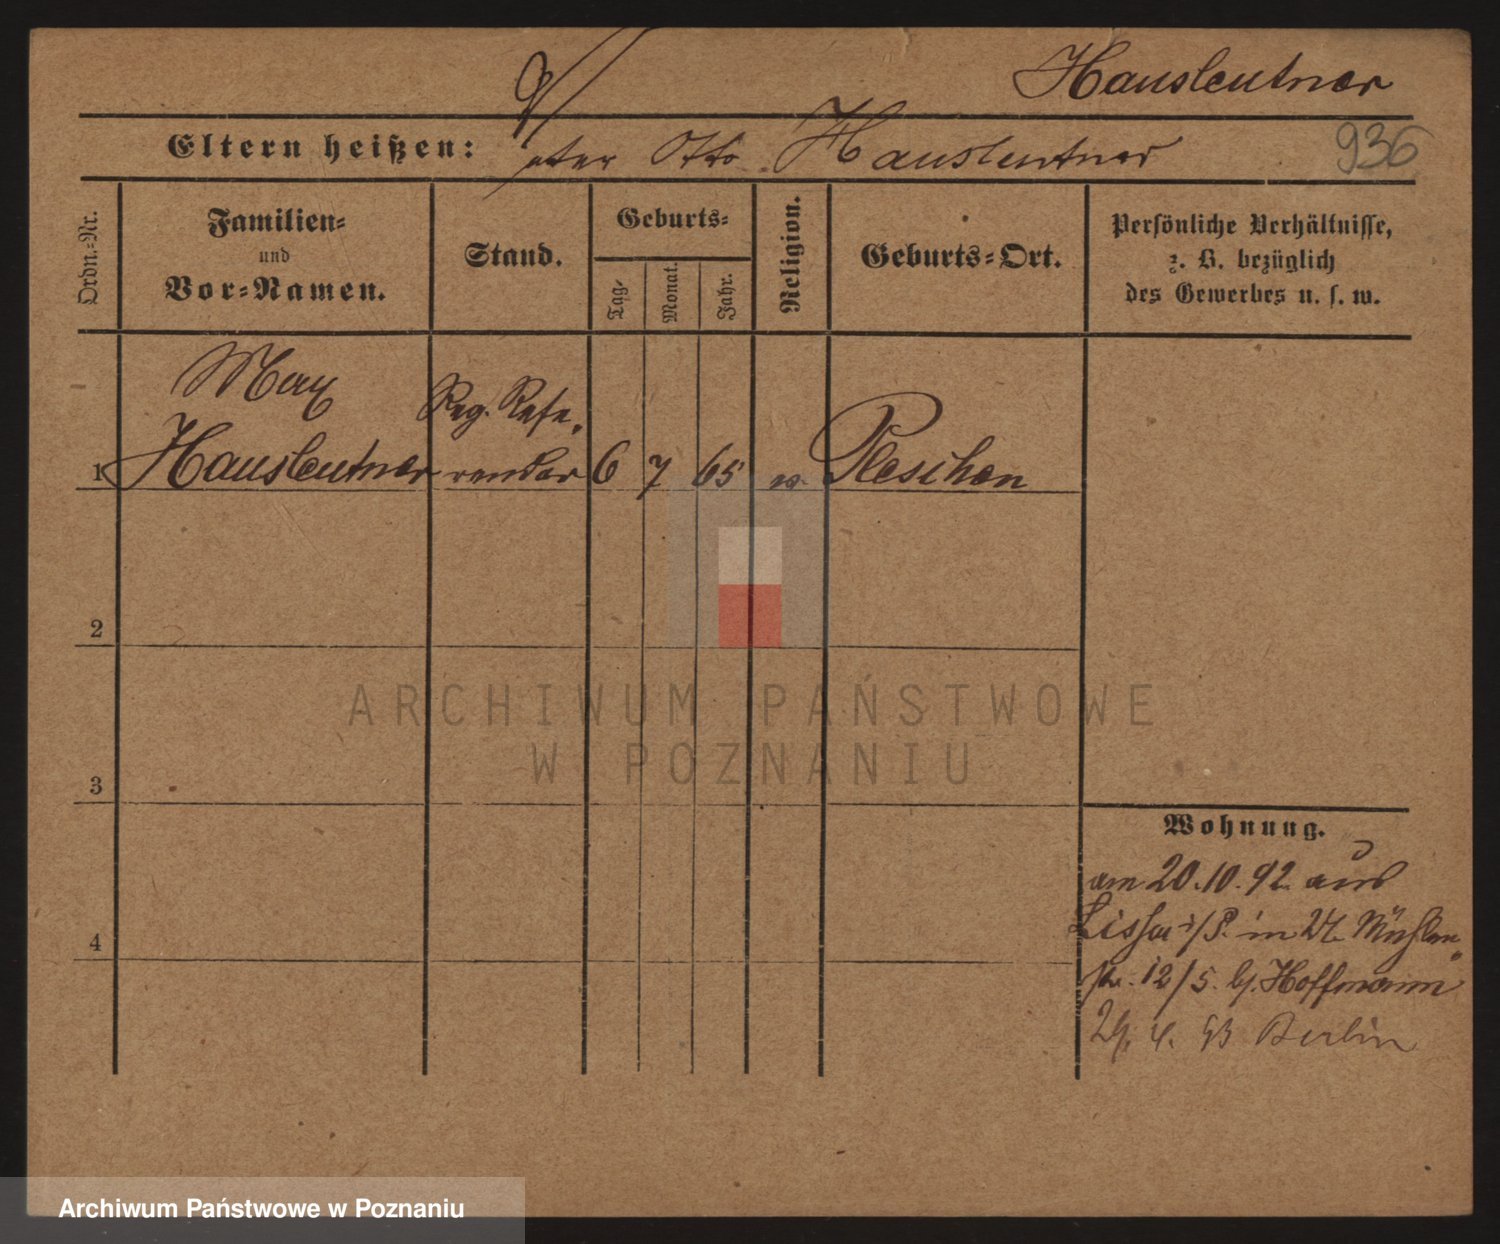 Hausleutner
Eltern heißen: Vater Otto Hausleutner 936
Ordn.-Nr.
Familien-
und
Vor-Namen.
Stand.
Geburts-
Tag-
Monat.
Jahr.
Religion.
Geburts-Ort.
Persönliche Verhältnisse,
z. B. bezüglich
des Gewerbes u. s. w.
Max
Reg. Refe-
1 Hausleutner rendar 6 7 65 ev. Pleschen
2
ARCHIWUM PAŃSTWOWE
W POZNANIU
3
4
Wohnung.
am 20.10.92. aus
Lissa i/P. in Mühlen
str. 12/5. b/. Hoffmann
4. 93 Berlin
Archiwum Państwowe w Poznaniu